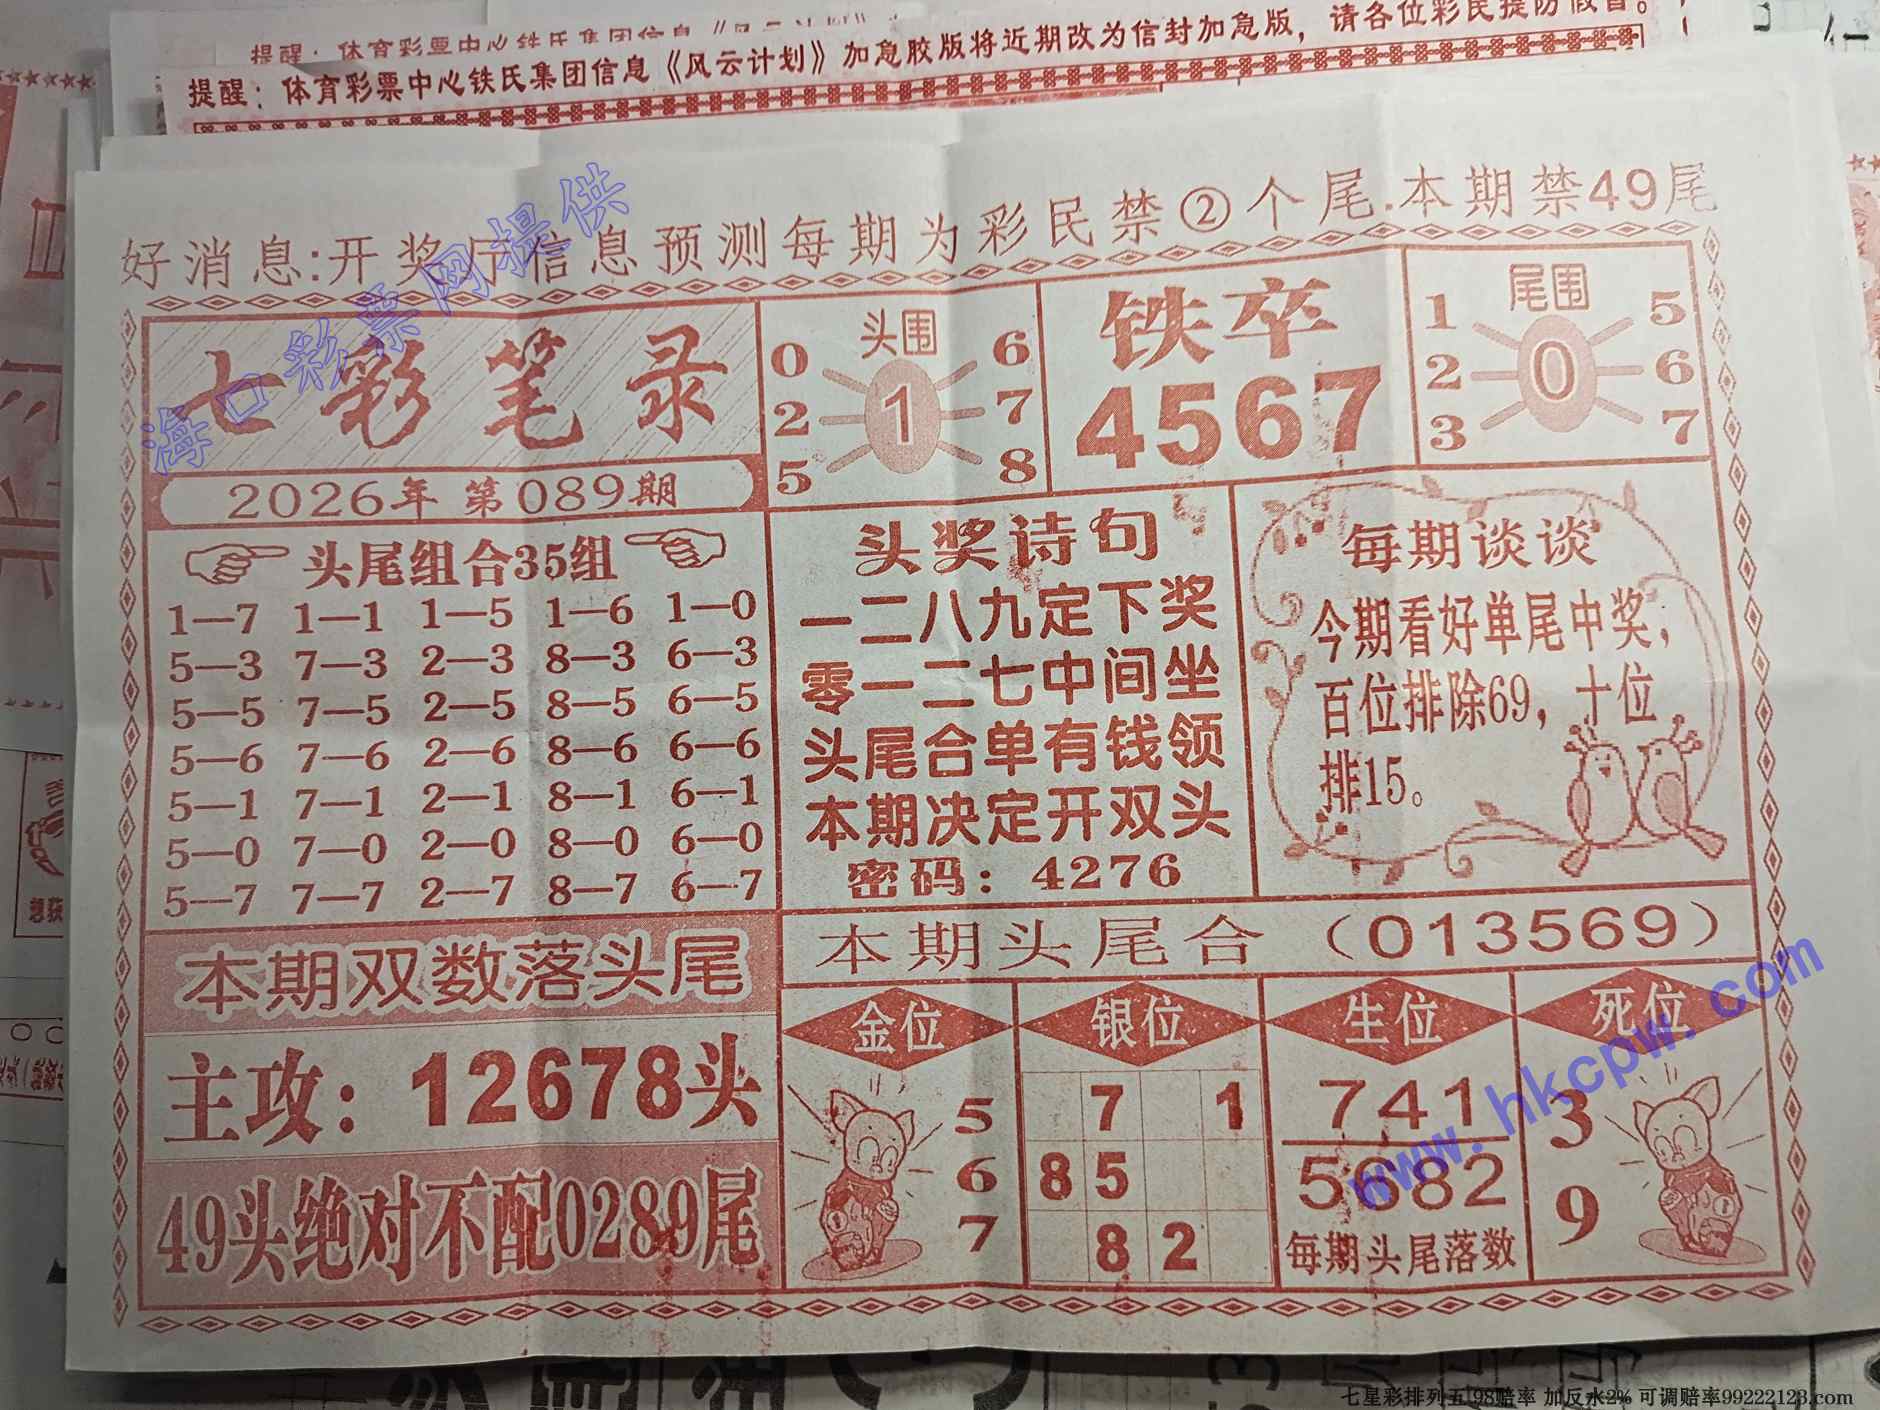 提醒：体育彩票中心铁氏集团信息《风云计划》加急胶版将近期改为信封加急版，请各位彩民提防假冒。
好消息:开奖厅信息预测每期为彩民禁②个尾.本期禁49尾
海口彩票网提供
七彩笔录
2026年 第089期
头围
0 6
2 1 7
5 8
铁卒
4567
尾围
1 5
2 0 6
3 7
头尾组合35组
1—7 1—1 1—5 1—6 1—0
5—3 7—3 2—3 8—3 6—3
5—5 7—5 2—5 8—5 6—5
5—6 7—6 2—6 8—6 6—6
5—1 7—1 2—1 8—1 6—1
5—0 7—0 2—0 8—0 6—0
5—7 7—7 2—7 8—7 6—7
头奖诗句
一二八九定下奖
零一二七中间坐
头尾合单有钱领
本期决定开双头
密码：4276
每期谈谈
今期看好单尾中奖，
百位排除69，十位
排15。
本期头尾合（013569）
本期双数落头尾
主攻：12678头
49头绝对不配0289尾
金位
5
6
7
银位
7 1
8 5
8 2
生位
741
5682
每期头尾落数
死位
3
9
www.hkcpw.com
七星彩排列五98赔率 加反水2% 可调赔率99222123.com